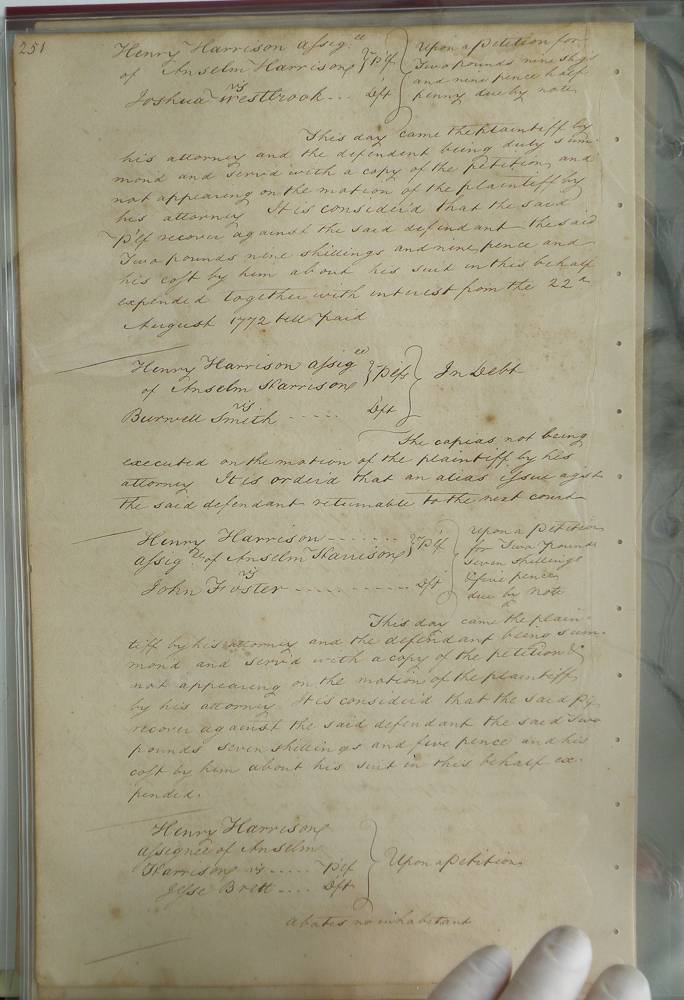 251
Henry Harrison assigee
of Anselm Harrison } Plf
vs
Joshua Westbrook ... Dft
Upon a Petition for
Two pounds nine shigs
and nine pence half
penny due by note
This day came the plaintiff by
his attorney and the defendent being duly sum-
mond and servd with a copy of the petition and
not appearing on the motion of the plaintiff by
his attorney It is considerd that the said
Plf recover against the said defendant the said
Two pounds nine shillings and nine pence and
his cost by him about his suit in this behalf
expended together with interest from the 22d
August 1772 till paid
Henry Harrison assigee
of Anselm Harrison } Plf
vs
Burwell Smith ..... Dft
In Debt
The capias not being
executed on the motion of the plaintiff by his
attorney It is orderd that an alias issue agst
the said defendant returnable to the next court
Henry Harrison ........ } Plf
assigee of Anselm Harrison
vs
John Foster ............ Dft
Upon a Petition
for Two pounds
seven shillings
& five pence
due by Note
This day came the plain-
tiff by his attorney and the defendant being sum-
mond and servd with a copy of the petition &
not appearing on the motion of the plaintiff
by his attorney It is considerd that the said Plf
recover against the said defendant the said Two
pounds seven shillings and five pence and his
cost by him about his suit in this behalf ex-
pended.
Henry Harrison
assignee of Anselm
Harrison vs ..... Plf
Jesse Brett .... Dft
Upon a Petition
abates no inhabitant